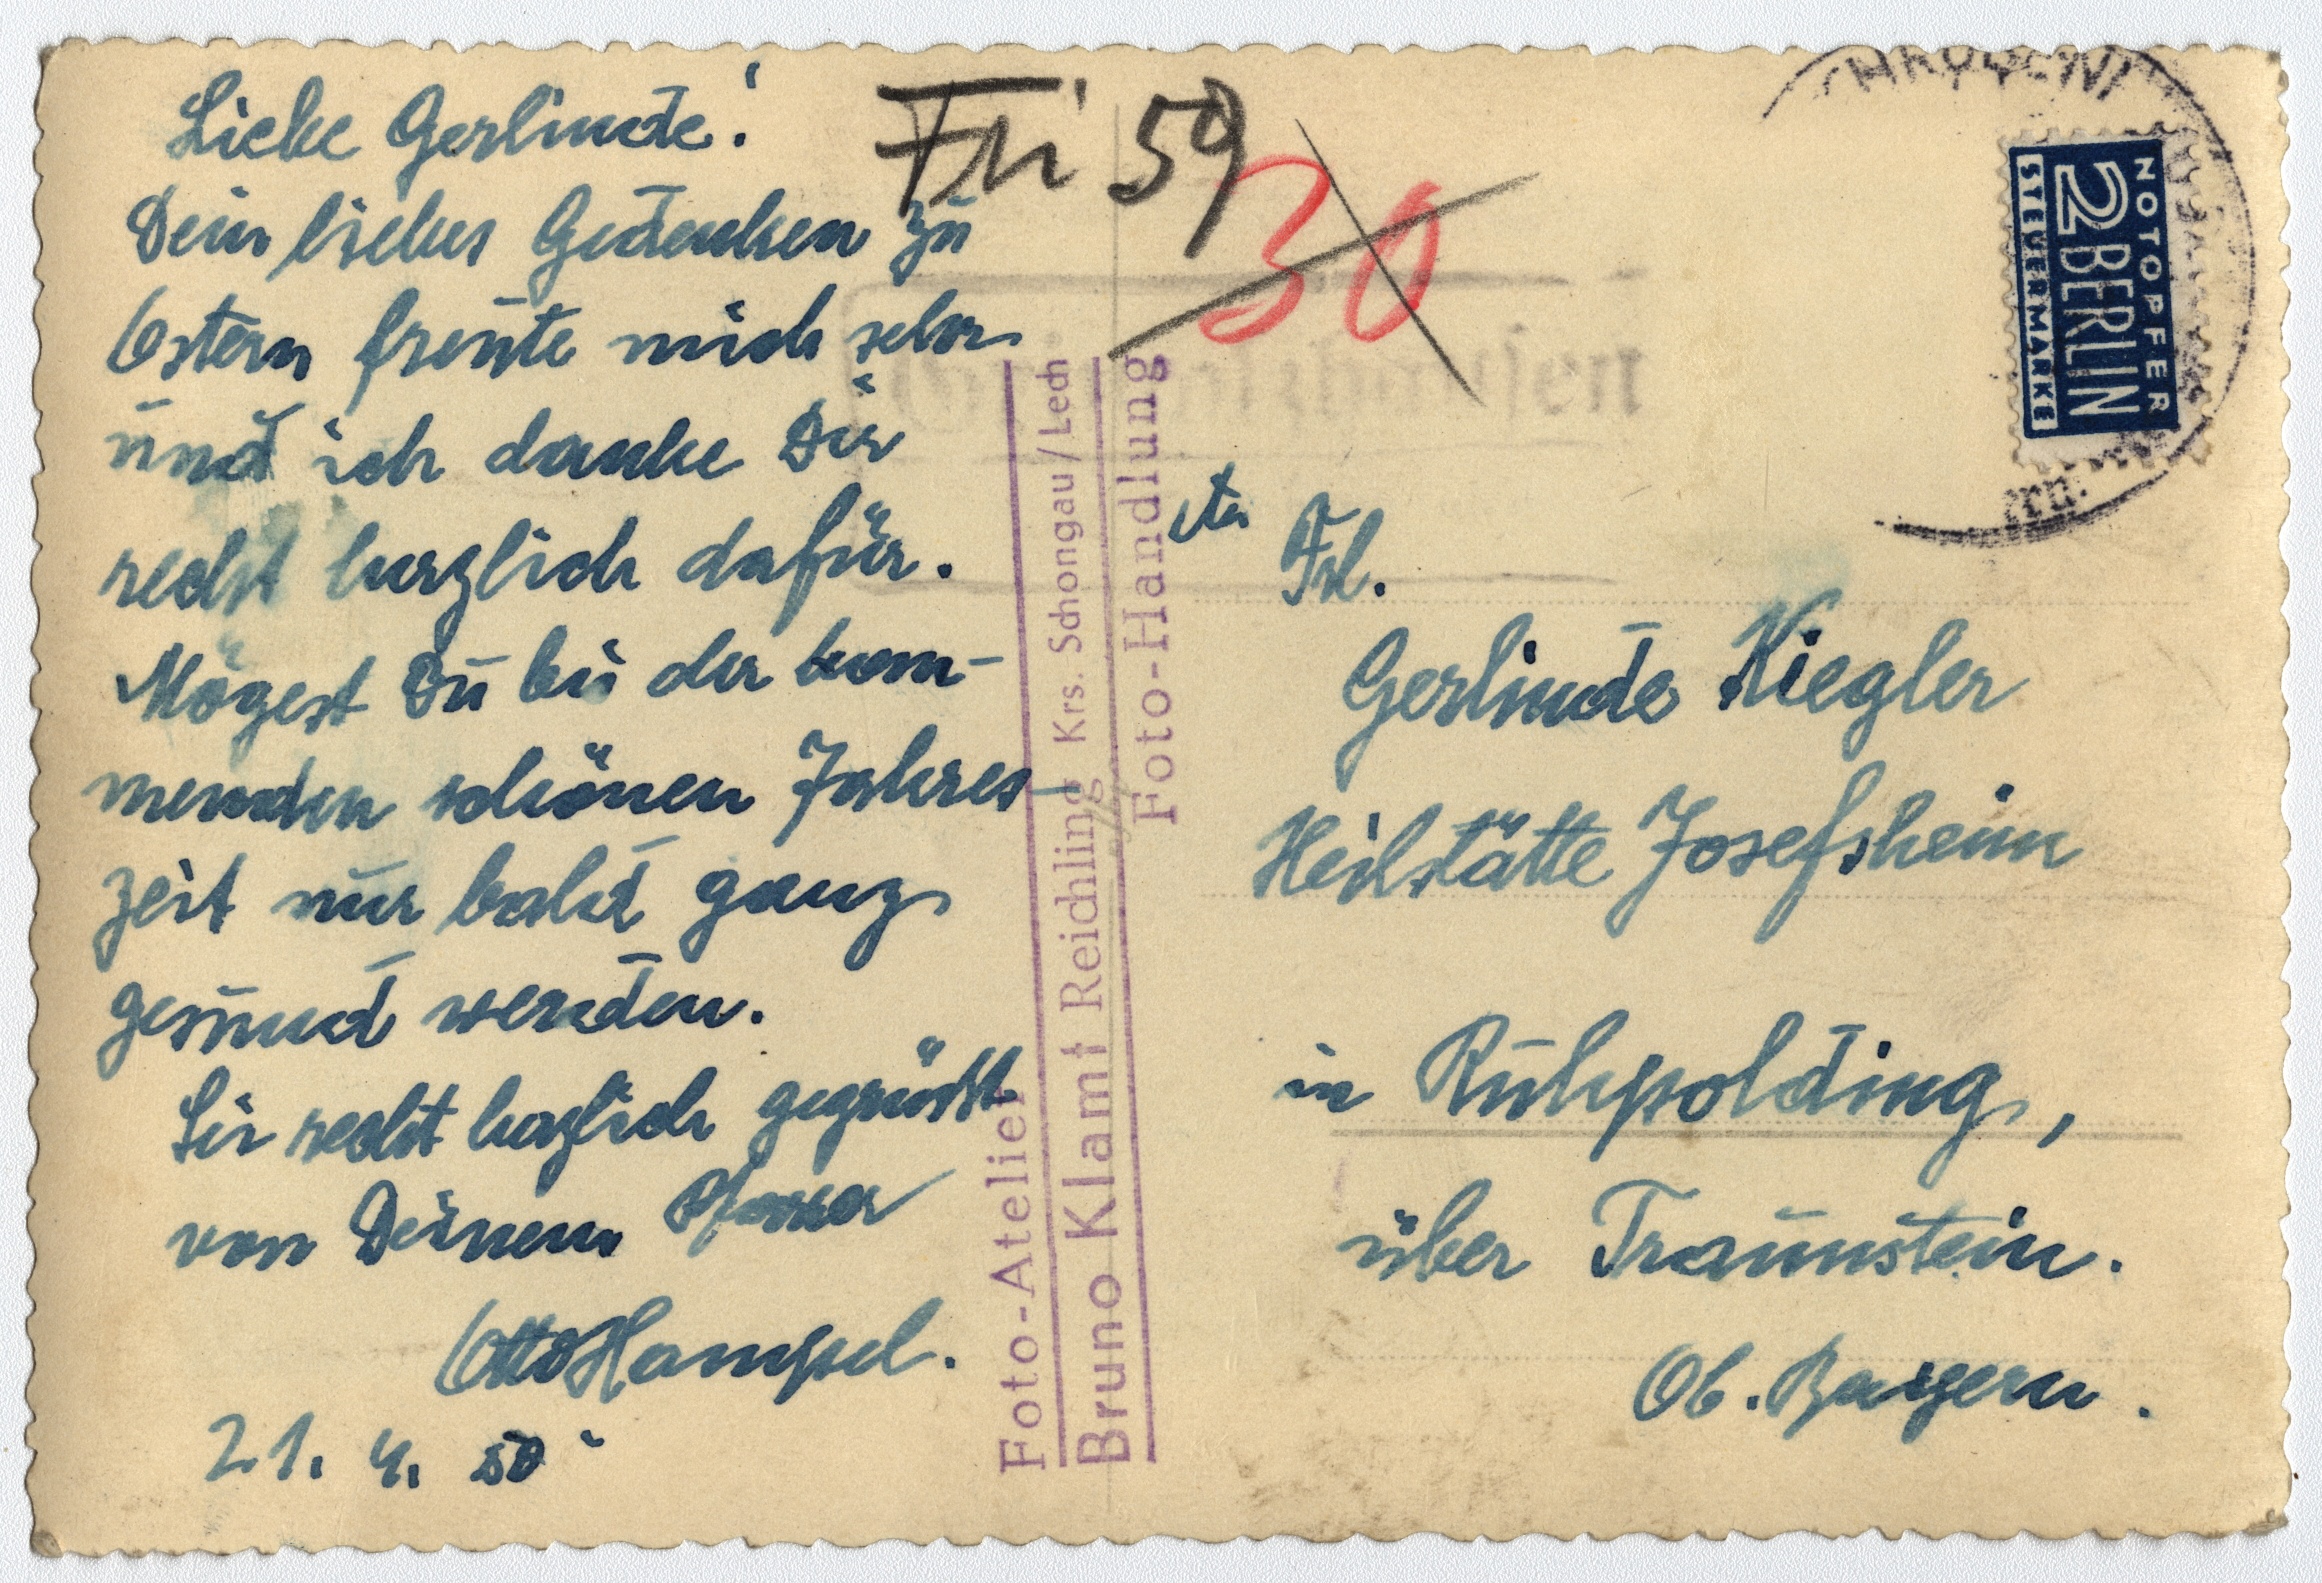 Liebe Gerlinde!
Dein liebes Gedenken zu
Ostern freute mich sehr
und ich danke Dir
recht herzlich dafür.
Mögest Du bei der kom-
menden schönen Jahres-
zeit nur bald ganz
gesund werden.
Sei recht herzlich gegrüßt
von Deinem Pfarrer
Otto Hampel.
21. 4. 50
59
30
Foto-Atelier
Bruno Klamt Reichling Krs. Schongau/Lech
Foto-Handlung
NOTOPFER
2 BERLIN
STEUERMARKE
An
Frl.
Gerlinde Kiegler
Heilstätte Josefsheim
in Ruhpolding,
über Traunstein.
Ob. Bayern.